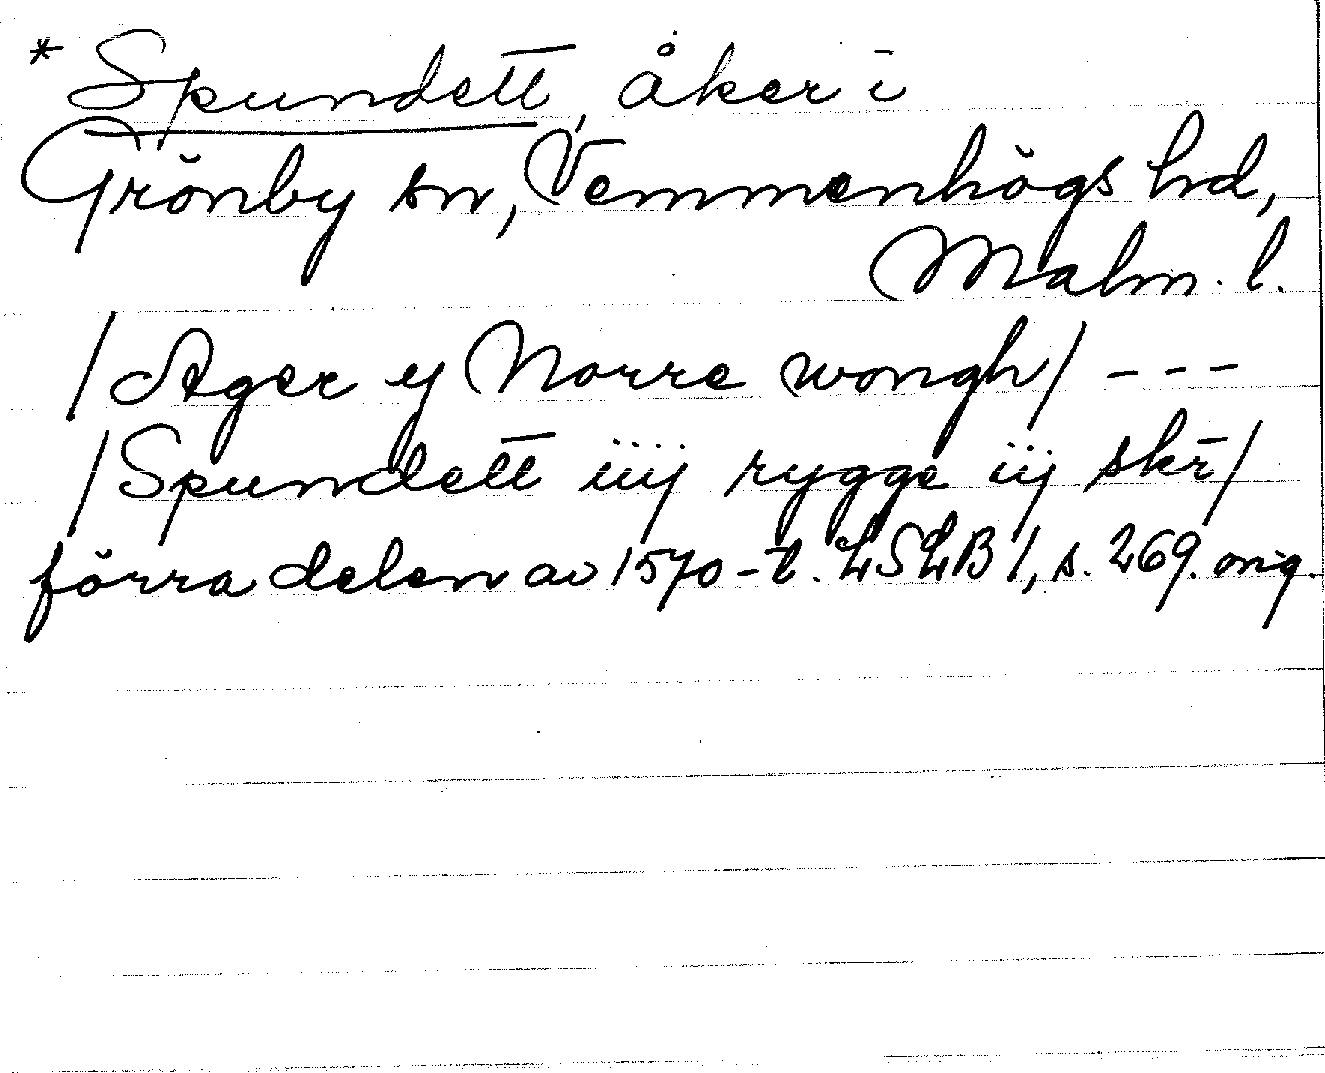 * Spundett, åker i
Grönby sn, Vemmenhögs hd,
Malm. l.
/Ager y Norre wongh/ ---
/Spundett iiij rygge iij skr̄/
förra delen av 1570-t. LSLB 1, s. 269. orig.